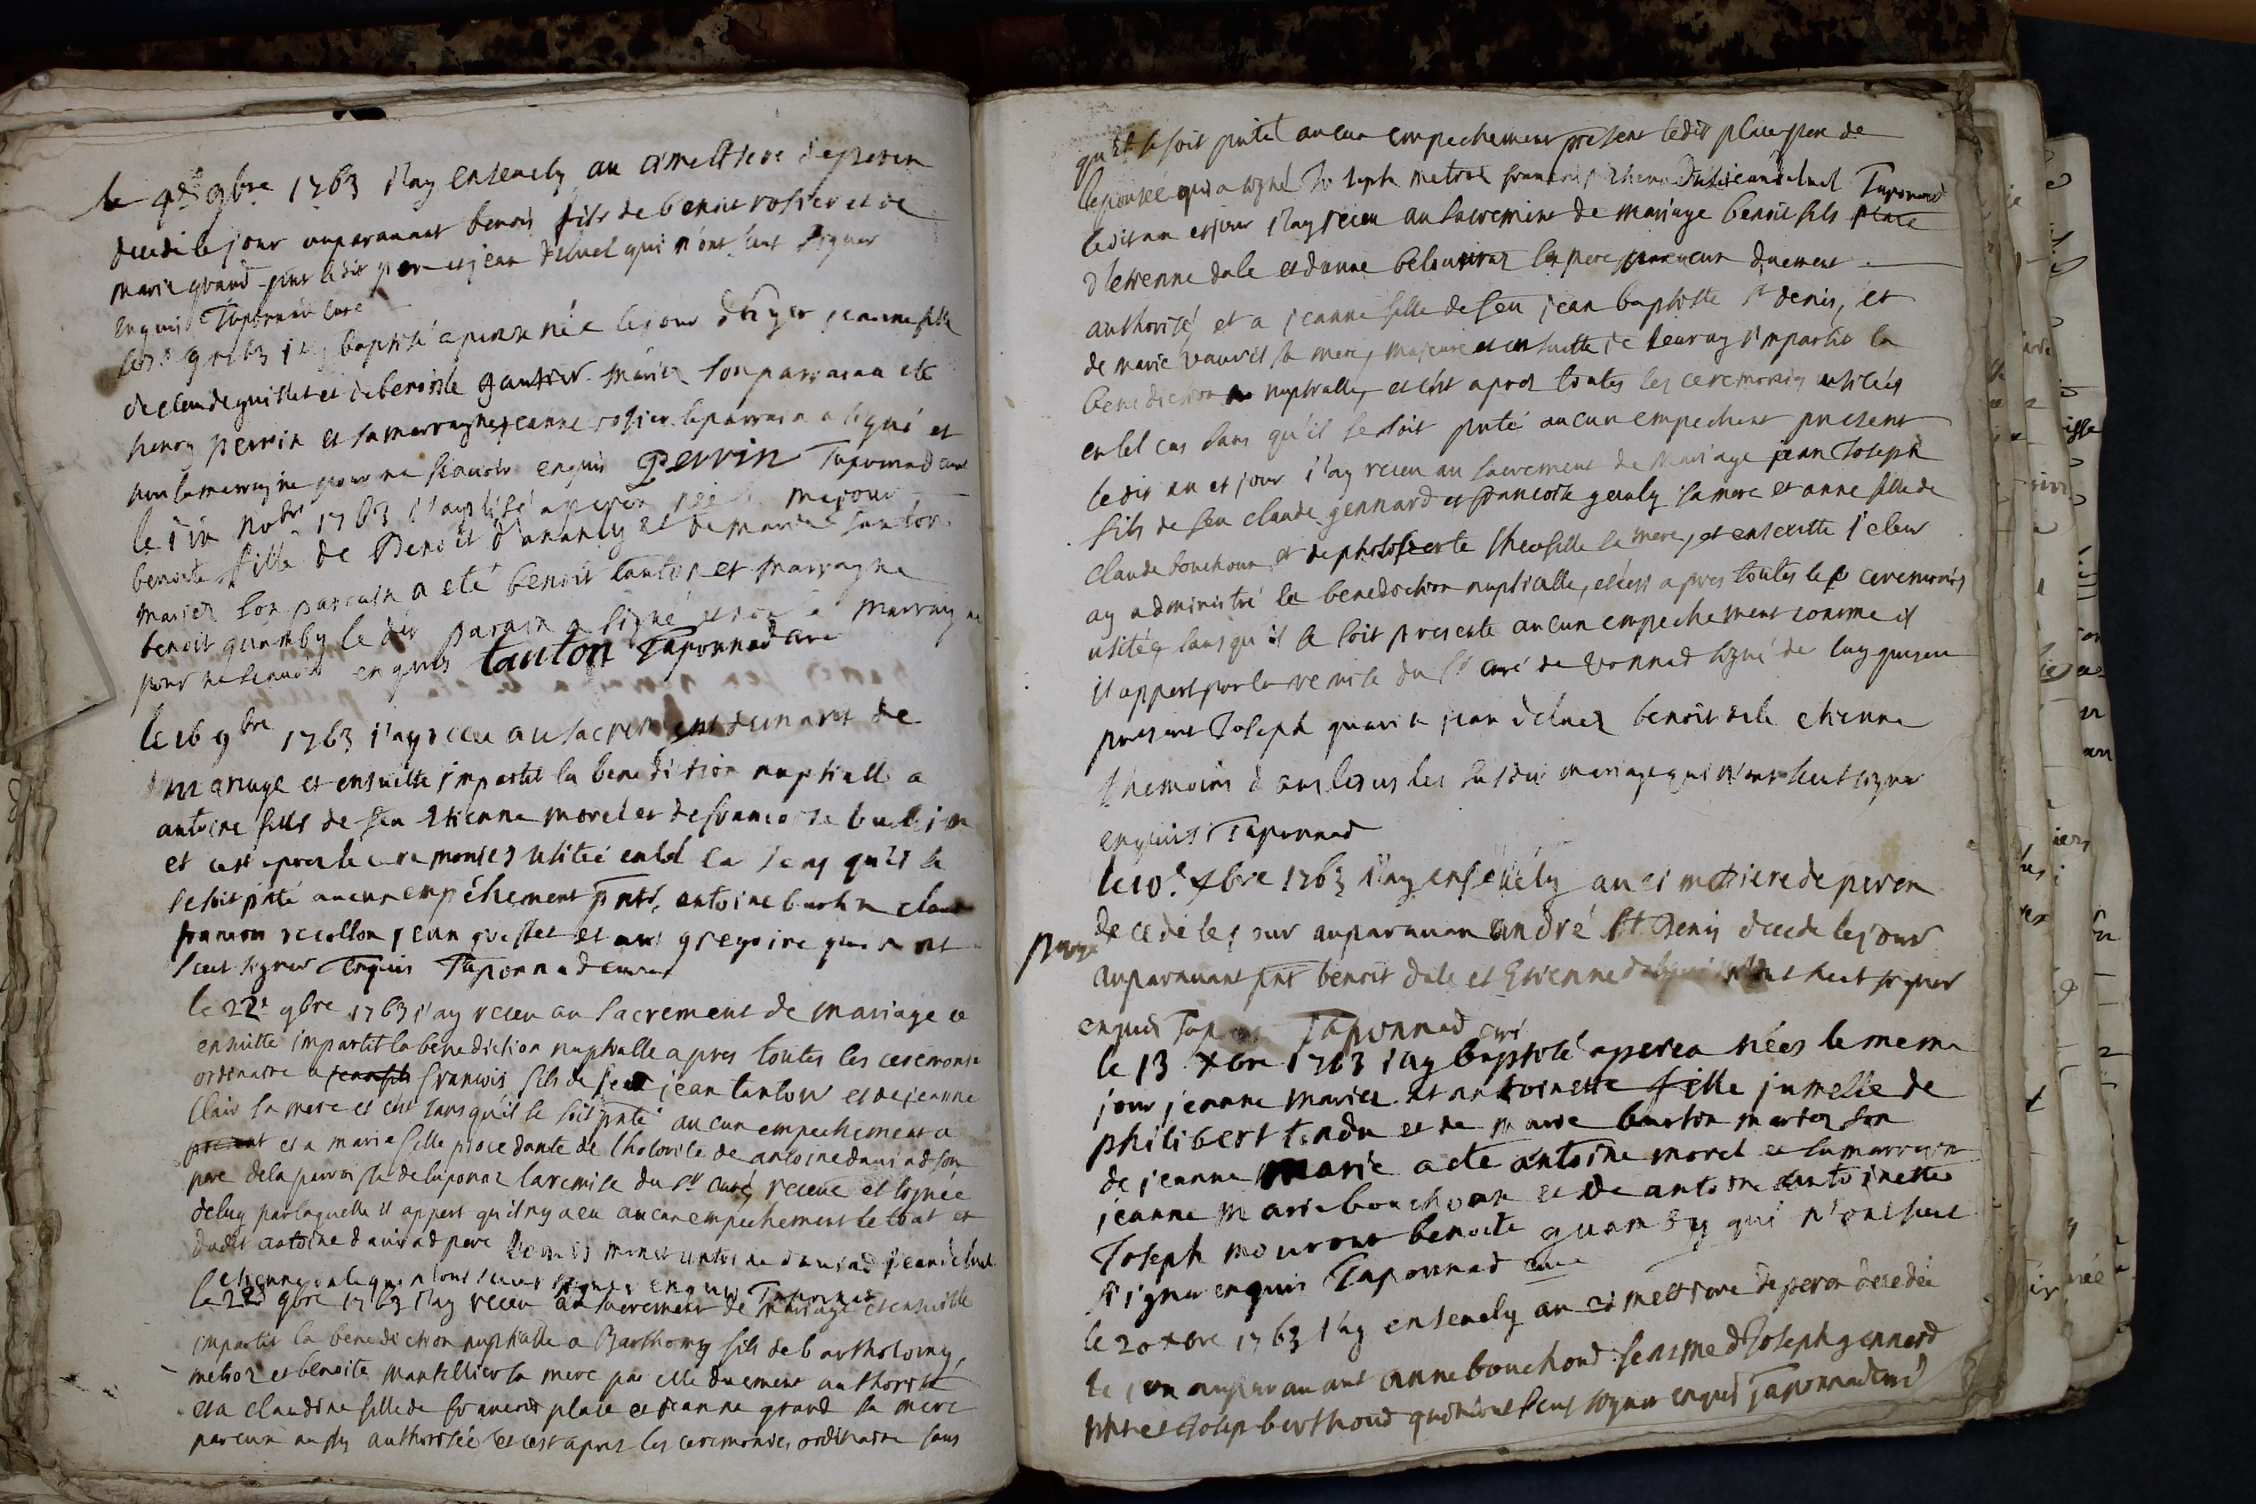 le 4e 9bre 1763 j'ay ensevely au cimettiere de peren
decedé le jour auparavant benois fils de benoit rosier et de
marie grand pnt ledit pere et jean deluel qui n'ont sceut signer
enquis Taponnad curé
9bre 1763 j'ay baptisé a peren née le jour d'hyer jeanne fille
de claude guillet et de benoiste gautier mariez son parrain a eté
henry perrin et sa marrayne jeanne rosier le parrain a signé et
non la marrayne pour ne scavoir enquis Perrin Taponnad curé
le nobre 1763 j'ay baptisé a peren née le meme jour
benoite fille de Benoit d'ananly et de marie tanton
mariez son parrain a eté benoit tanton et marrayne
benoit quamby le dit parain a signé et non la marrayne
pour ne scavoir enquis tanton Taponnad curé
le 16 9bre 1763 j'ay receu au sacrement de
mariage et ensuitte impartit la benediction nuptialle a
antoine fils de feu etienne morel et de francoise
et cest apres les ceremonies usitée en tel cas sans qu'il se
se soit pnté aucun empéchement pnts, antoine burtin claude
francois recollon jean guillet et gregoire qui n'ont
sceut signer enquis Taponnad curé
le 22e 9bre 1763 j'ay receu au sacrement de mariage et
ensuitte impartit la benediction nuptialle apres toutes les ceremonies
ordinaire a jean fils francois fils de feu jean tanton et de jeanne
clair sa mere et c'est sans qu'il se soit pnté aucun empechement a
present et a marie fille procedante de l'hotorité de antoine daviad son
pere de la parroisse de laponaz la remise du sr curé receue et signée
de luy par laquelle il appert qu'il n'y a eu aucun empechement le tout et
dudit antoine daviad pere morel antoine daviad jean deluel
etienne dale qui n'ont sceut signer enquis Taponnad
le 22e 9bre 1763 j'ay receu au sacrement de mariage et ensuitte
impartit la benediction nuptialle a Barthomy fils de bartholomy
metroz et benoite mantellier sa mere par elle duement authorisé
et a claudine fille de francois place et jeanne grand sa mere
par eux aussy authorisée et cest apres les ceremonies ordinaire sans
qu'il se soit pnté aucun empechement present ledit place pere de
lepousée qui a signé Joseph metroz francois jean deluel Taponnad
ledit an et jour j'ay receu au sacrement de mariage benoit fils place
d'etienne dale et danne belouvraz les pere par eux duement
authorisé et a jeanne fille de feu jean baptiste st denis, et
de marie vauvris sa mere, majeure et ensuitte je leur ay impartis la
benediction nuptialle, et c'est apres toutes les ceremonies usitées
en tel cas sans qu'il se soit pnté aucun empechent present
ledit an et jour j'ay receu au sacrement de mariage jean Joseph
fils de feu claude gennard et francoise genly sa mere et anne fille de
claude bouchoux et de philiberte sa mere, et ensuitte je leur
ay administré la benediction nuptialle, et cest apres toutes les ceremonies
usitées sans qu'il se soit presenté aucun empechement comme il
il appert par la remise du sr curé de vonnad signé de luy
present Joseph jean deluez benoit dale etienne
themoins d mariage qui n'ont sceut signer
enquis Taponnad
le 10e xbre 1763 j'ay ensevely au cimettiere de peren
decedé le jour auparavan andré st Denis decedé le jour
auparavant pnt benoit dale et Etienne dale qui n'ont sceut signer
enquis Tap Taponnad curé
le 13 xbre 1763 j'ay baptisé a peren nées le meme
jour jeanne mariez et antoinette fille jumelle de
philibert tendu et de marie burtin mariez son
de jeanne marie a eté antoine morel et sa marrayne
jeanne marie bouchoux et de antoine antoinette
Joseph mouroux benoite quamby qui n'ont sceut
signer enquis Taponnad curé
le 20 xbre 1763 j'ay ensevely au cimettiere de peren decedée
le jour auparavant anne bouchoud femme d Joseph gennard
pnt et Josep berthoud qui n'ont sceut signer enquis Taponnad curé